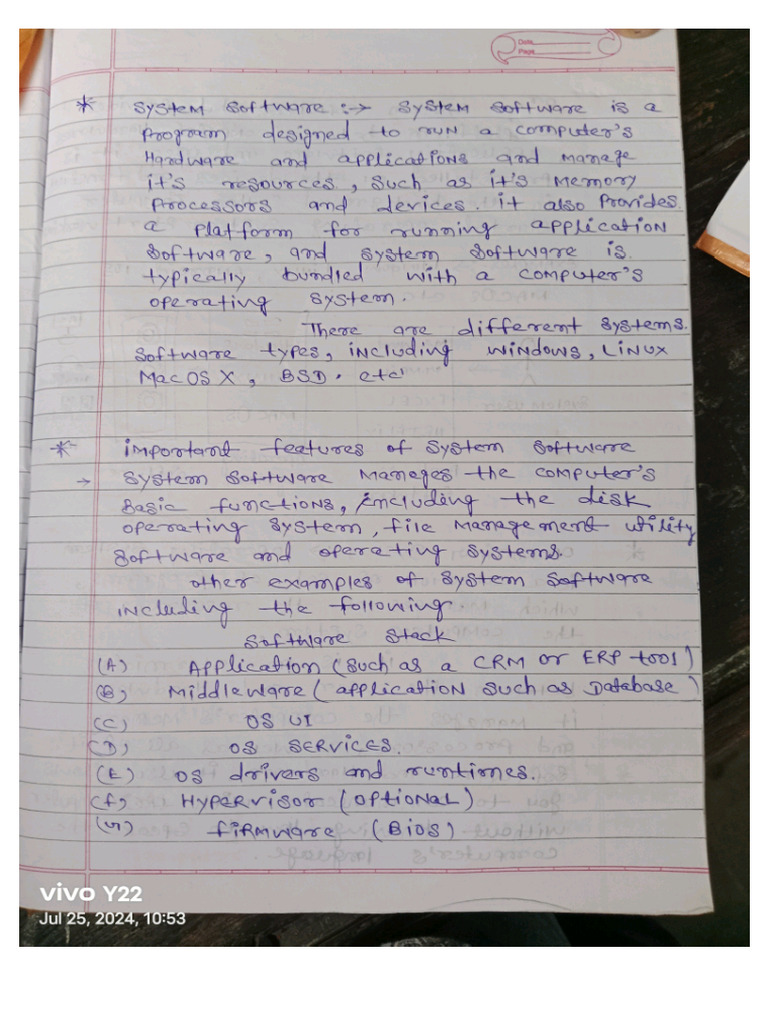 Date
Page
* System Software :→ System Software is a
Program designed to run a computer's
Hardware and applications and manage
it's resources, such as it's memory
Processors and devices. it also Provides
a Platform for running application
Software, and system software is.
typically bundled with a computer's
operating system.
There are different systems.
Software types, including windows, Linux
Mac OS X, BSD. etc'
* important features of system software
→ System Software Manages the computer's
Basic functions, including the disk
operating system, file management utility
Software and operating systems.
other examples of system software
including the following
Software stack
(A) Application (such as a CRM or ERP tool)
(B) Middleware (application such as Database)
(C) OS UI
(D) OS SERVICES.
(E) OS drivers and runtimes.
(F) Hypervisor (optional)
(G) firmware (BIOS)
vivo Y22
Jul 25, 2024, 10:53